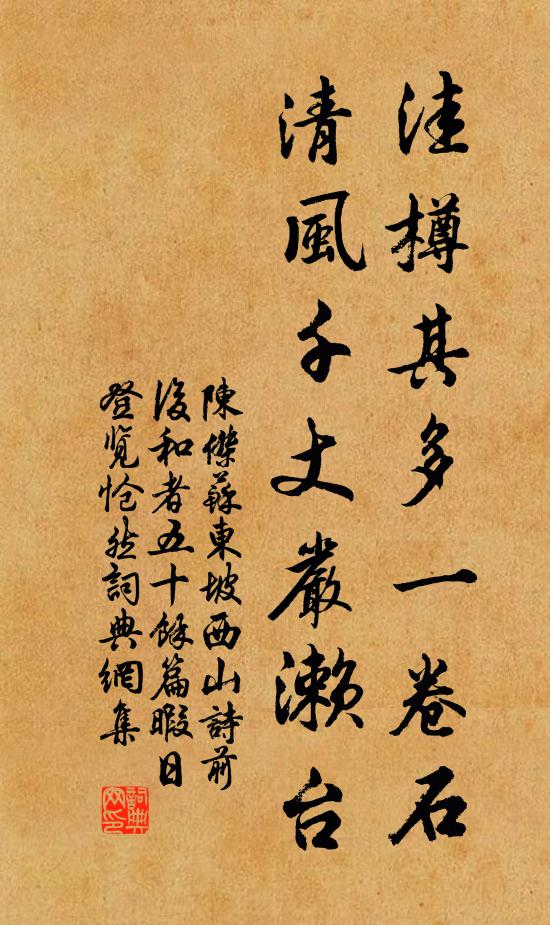 洼樽其多一卷石
清風千丈嚴濑台
陳傑蘇東坡西山詩前
後和者五十餘篇暇日
登览怆然詞典網集
詞典网印